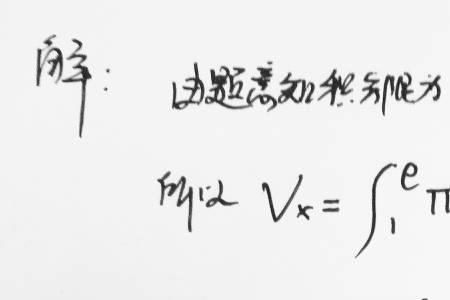 解: 由题意知积分限为
所以 Vx = ∫₁ᵉ π